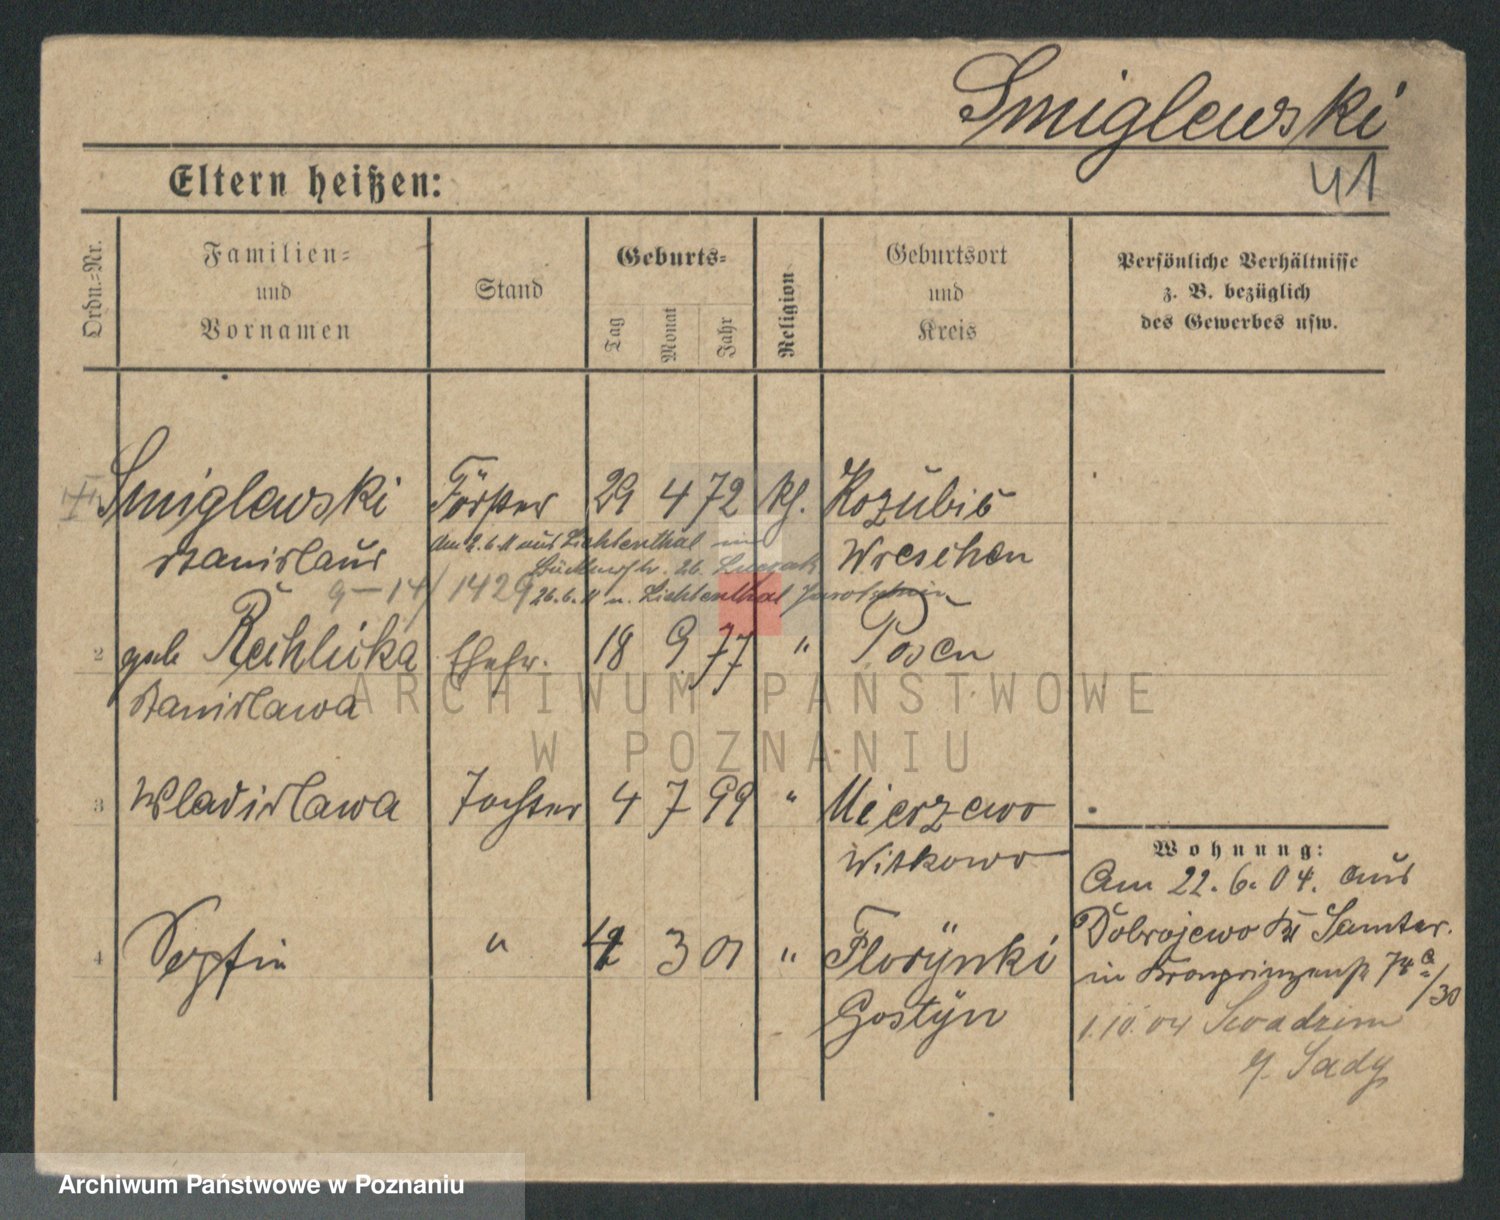 Smiglewski
41
Eltern heißen:
Ordn.=Nr.
Familien=
und
Vornamen
Stand
Geburts=
Tag
Monat
Jahr
Religion
Geburtsort
und
Kreis
Persönliche Verhältnisse
z. B. bezüglich
des Gewerbes usw.
Smiglewski Förster 29 4 72 kh. Kozubiec
Stanislaus Wreschen
am 2.6.11 aus Lichtenthal in
26.6.11 n. Lichtenthal Jarotschin
9-14/1429
2 geb Rechlicka Ehefr. 18 9 77 " Posen
Stanislawa
3 Wladislawa Tochter 4 7 99 " Mierzewo
Witkowo
4 Sophie " 3 01 " Florynki
Gostyn
Wohnung:
Am 22.6.04. aus
Dobrojewo Kr Samter.
in Kronprinzenstr 74a/30
1.10.04 Swadzim
p. Sady
ARCHIWUM PAŃSTWOWE
W POZNANIU
Archiwum Państwowe w Poznaniu